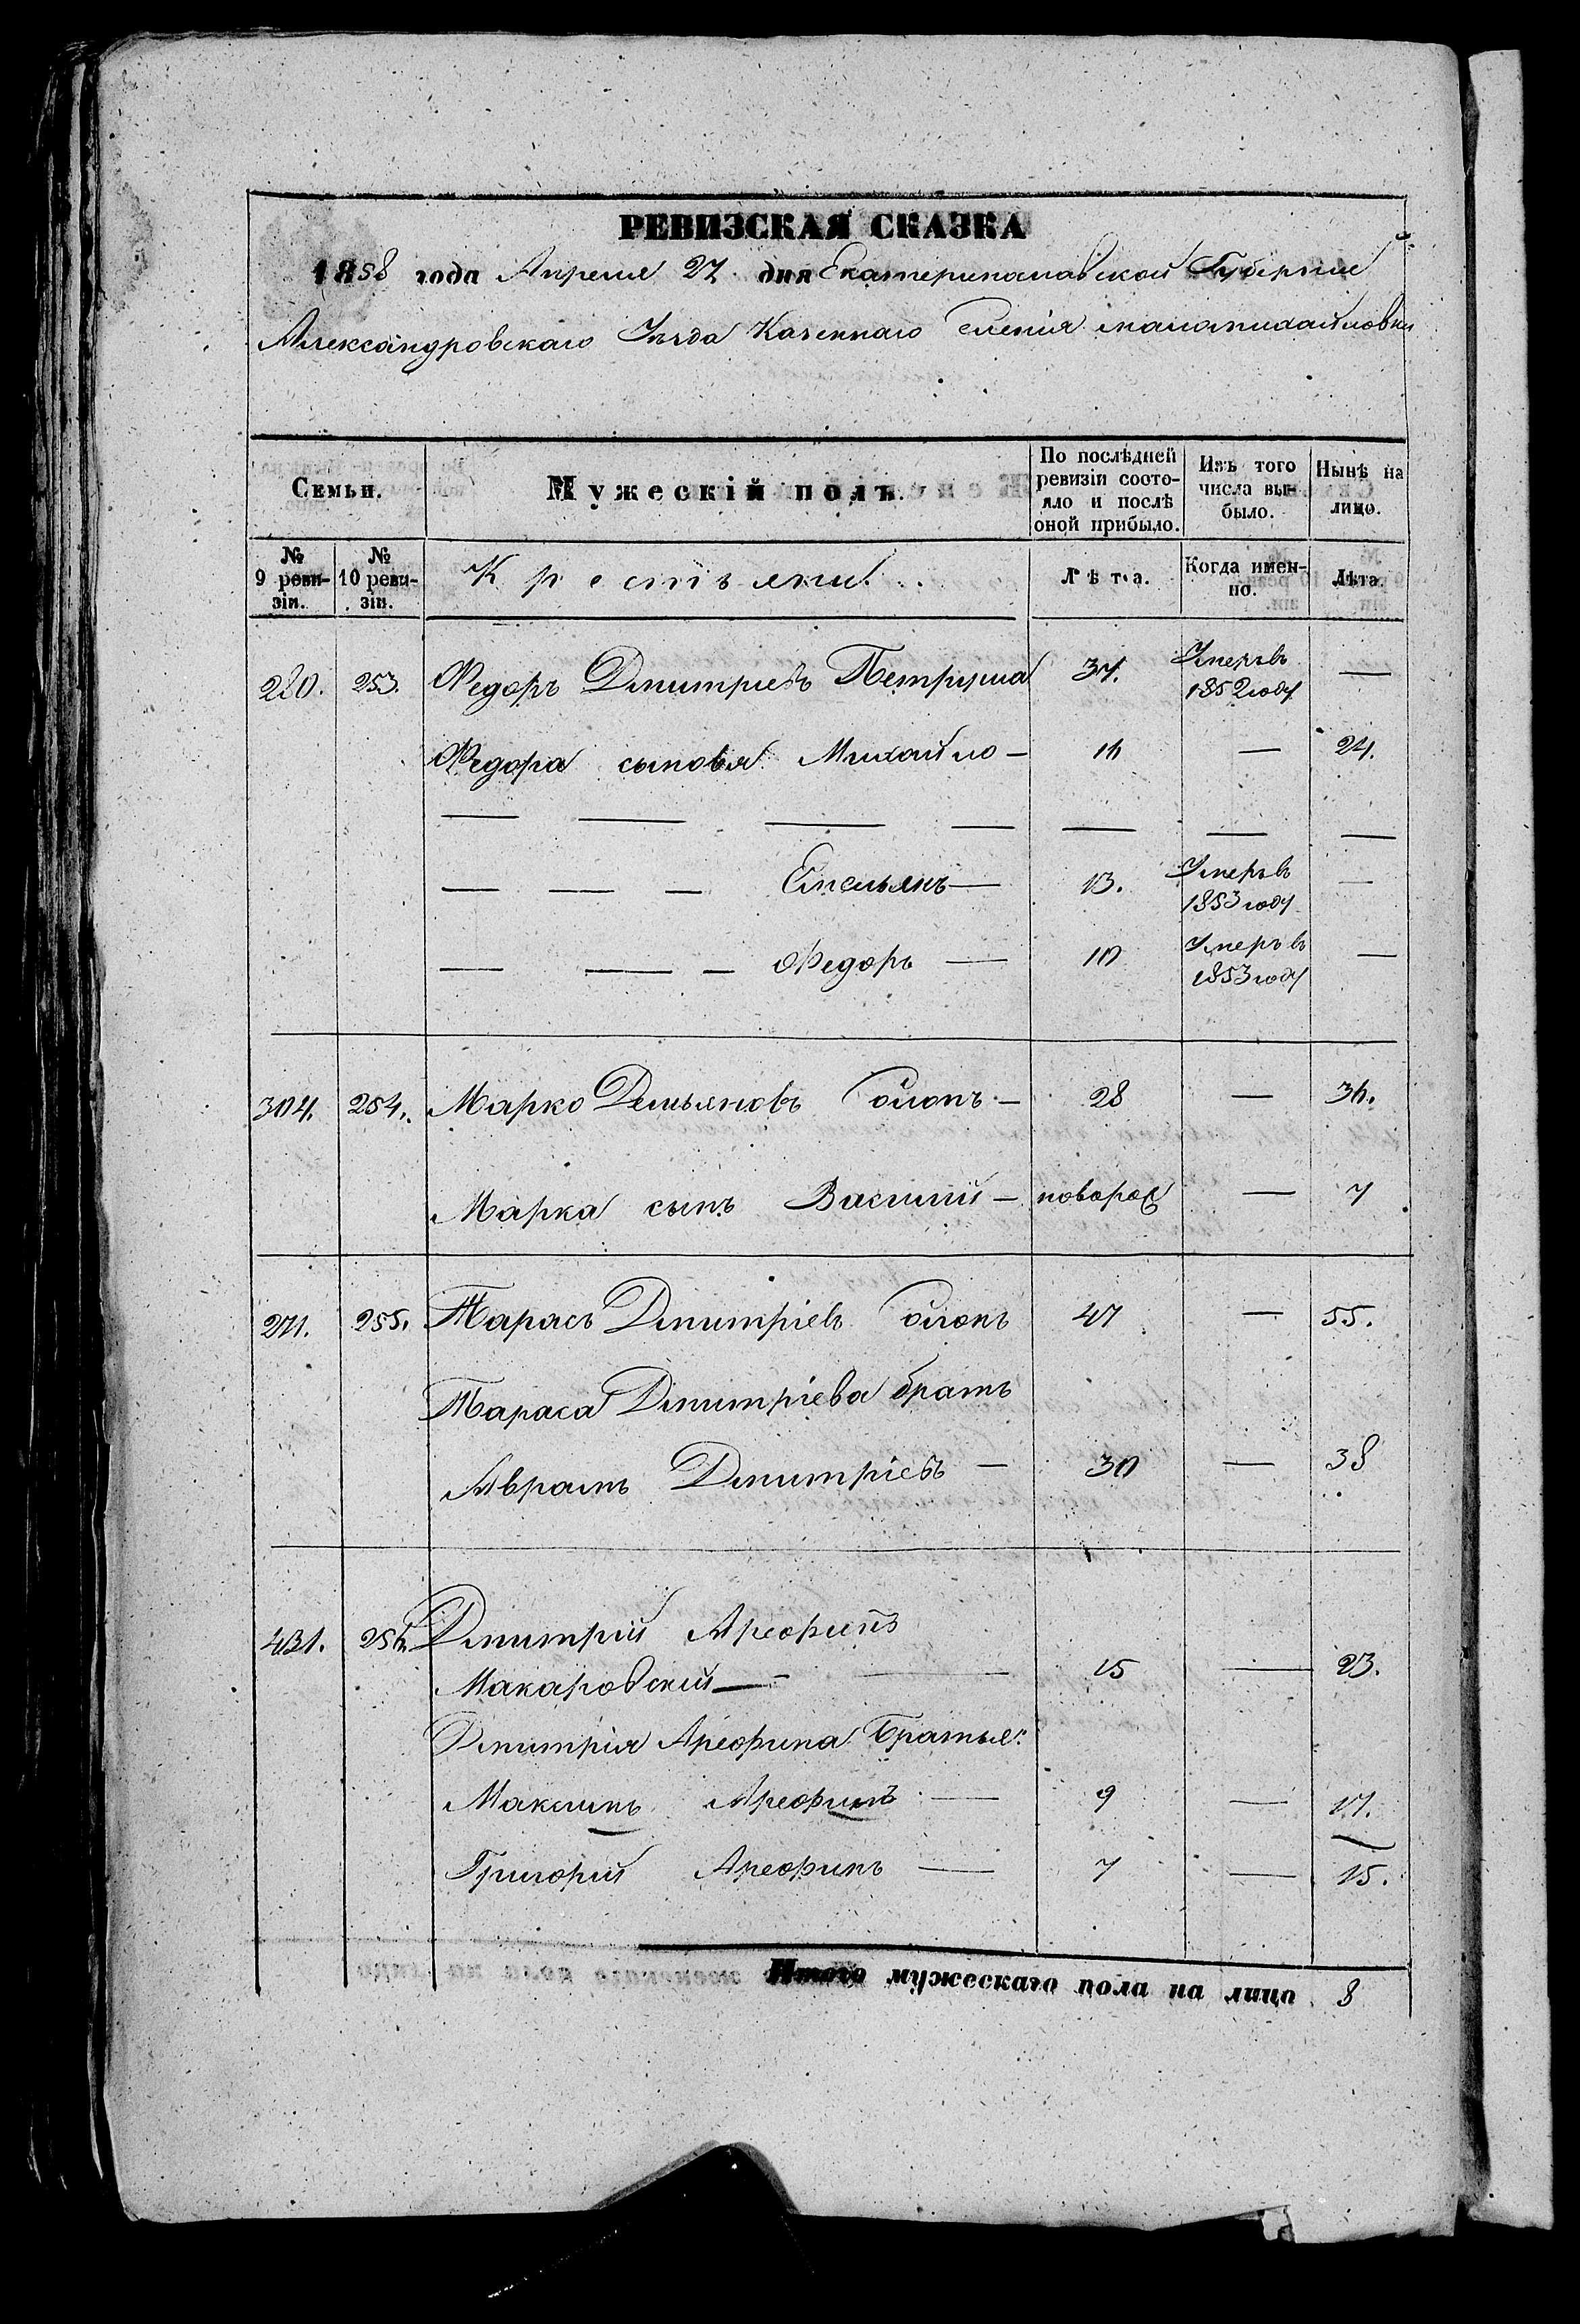 РЕВИЗСКАЯ СКАЗКА
1858 года Апреля 27 дня Екатеринославской Губернии
Александровскаго Уезда Казеннаго Селенія Маломихайловки
Семьи. Мужескій полъ. По послѣдней ревизіи состояло и послѣ оной прибыло. Изъ того числа выбыло. Нынѣ на лицо.
№ 9 ревизіи. № 10 ревизіи. Крестьяне. Лѣта. Когда именно. Лѣта.
280. 253. Федоръ Дмитріевъ Петруша 37. Умеръ в 1852 году —
Федора сыновья Михайло — 16 — 24.
— — — Емельянъ — 13. Умеръ в 1853 году —
— — — Федоръ — 10 Умеръ в 1853 году —
304. 254. Марко Демьяновъ Солопъ — 28 — 36.
Марка сынъ Василий — новорож — 7
271. 255. Тарасъ Дмитріевъ Солопъ 47 — 55.
Тараса Дмитріева братъ
Аврамъ Дмитріевъ — 30 — 38
431. 256. Дмитрий Арефинъ
Макаровский — — 15 — 23.
Дмитрія Арефина Братья:
Максимъ Арефинъ — 9 — 17.
Григорий Арефинъ — 7 — 15.
Итого мужескаго пола на лицо 8